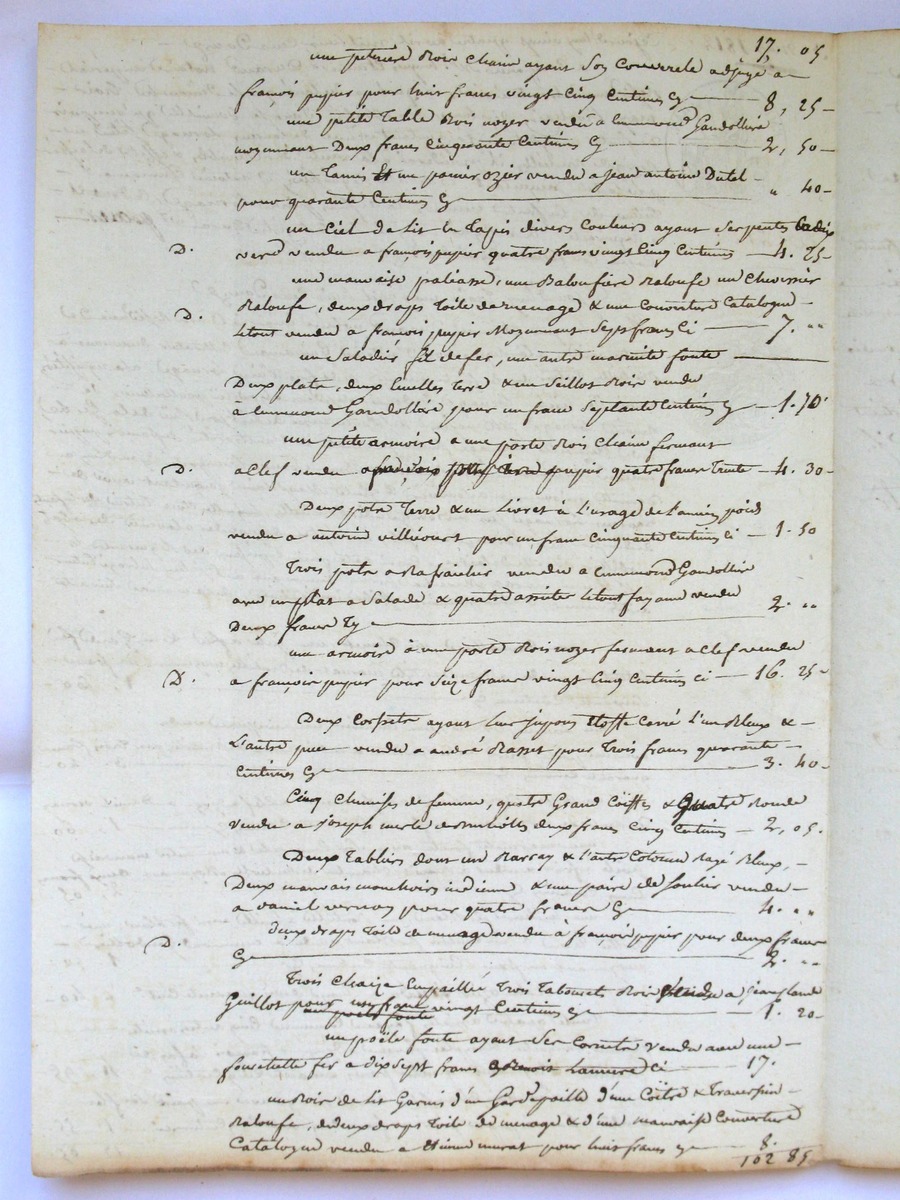 17, 05
une petriere Bois chaine ayant son couvercle adjugé a
françois pupier pour huit francs vingt cinq Centimes Cy — 8, 25 —
une petite Table Bois noyer vendu a Ennemond Gandolliere
moyennant Deux francs Cinquante Centimes Cy — 2, 50 —
un Tamis Et un panier ozier vendu a jean antoine Dutel —
pour quarante Centimes Cy — " 40 —
un Ciel de Lit en Tapis divers Couleurs ayant serpentes Cadix
D. verd vendu a françois pupier quatre francs vingt Cinq Centimes — 4. 25
une mauvaise paliasse, une Baloufiere Baloufe un Chevessier
D. Baloufe, deux draps Toile de menage & une Couverture Catalogue —
Letout vendu a françois pupier Moyennant Sept francs Ci — 7. "
un Saladier fil de fer, une autre marmite fonte —
Deux plats, deux Ecuelles Terre & un Seillot Bois vendu
à Ennemond Gandollière pour un franc Septante Centimes Cy — 1. 70
une petite armoire a une porte Bois Chaine fermant
D. a Clef vendu a françois pupier quatre francs Trente — 4. 30 —
Deux pots Terre & un Livret à L'usage de L'ancien poids
vendu a antoine villiecourt pour un franc Cinquante Centimes Ci — 1. 50
Trois pots a Rafraichir vendu a Ennemond Gandollier
avec un plat a Salade & quatre assiettes Letout fayance vendu
Deux francs Cy — 2. "
une armoire à une porte Bois noyer fermant a Clef vendu
D. a françois pupier pour Seize francs vingt Cinq Centimes Ci — 16. 25
Deux Corsets ayant leur jupons Etoffe Carré L'un Bleux & —
L'autre puce vendu a andré Rasset pour Trois francs quarante —
Centimes Cy — 3. 40 —
Cinq Chemises de femme, quatre Grand Coiffes & Quatre Ronde
vendu a joseph merle deux francs Cinq Centimes — 2, 05.
Deux Tabliers dont un & L'autre Cotonne Razé Bleux, —
Deux mauvais mouchoirs indienne & une paire de Soulier vendu —
a daniel vernay pour quatre francs Cy — 4. "
D. deux draps Toile de menage vendu à françois pupier pour deux francs
Cy — 2. "
Trois Chaize Empaillée Trois Tabourets Bois vendu a jean Claude
Guillot pour un franc vingt Centimes Cy — 1. 20 —
un poële fonte
un poële fonte ayant Ses Cornets vendu avec une —
fourchette fer a dix Sept francs a Benoit Ci — 17.
un Bois de Lit Garnis d'un Gardepaille d'une Coitre & Traversin —
Baloufe, de deux draps Toile de menage & d'une mauvaise Couverture
Catalogue vendu a Etienne murat pour huit francs Cy — 8.
102 85